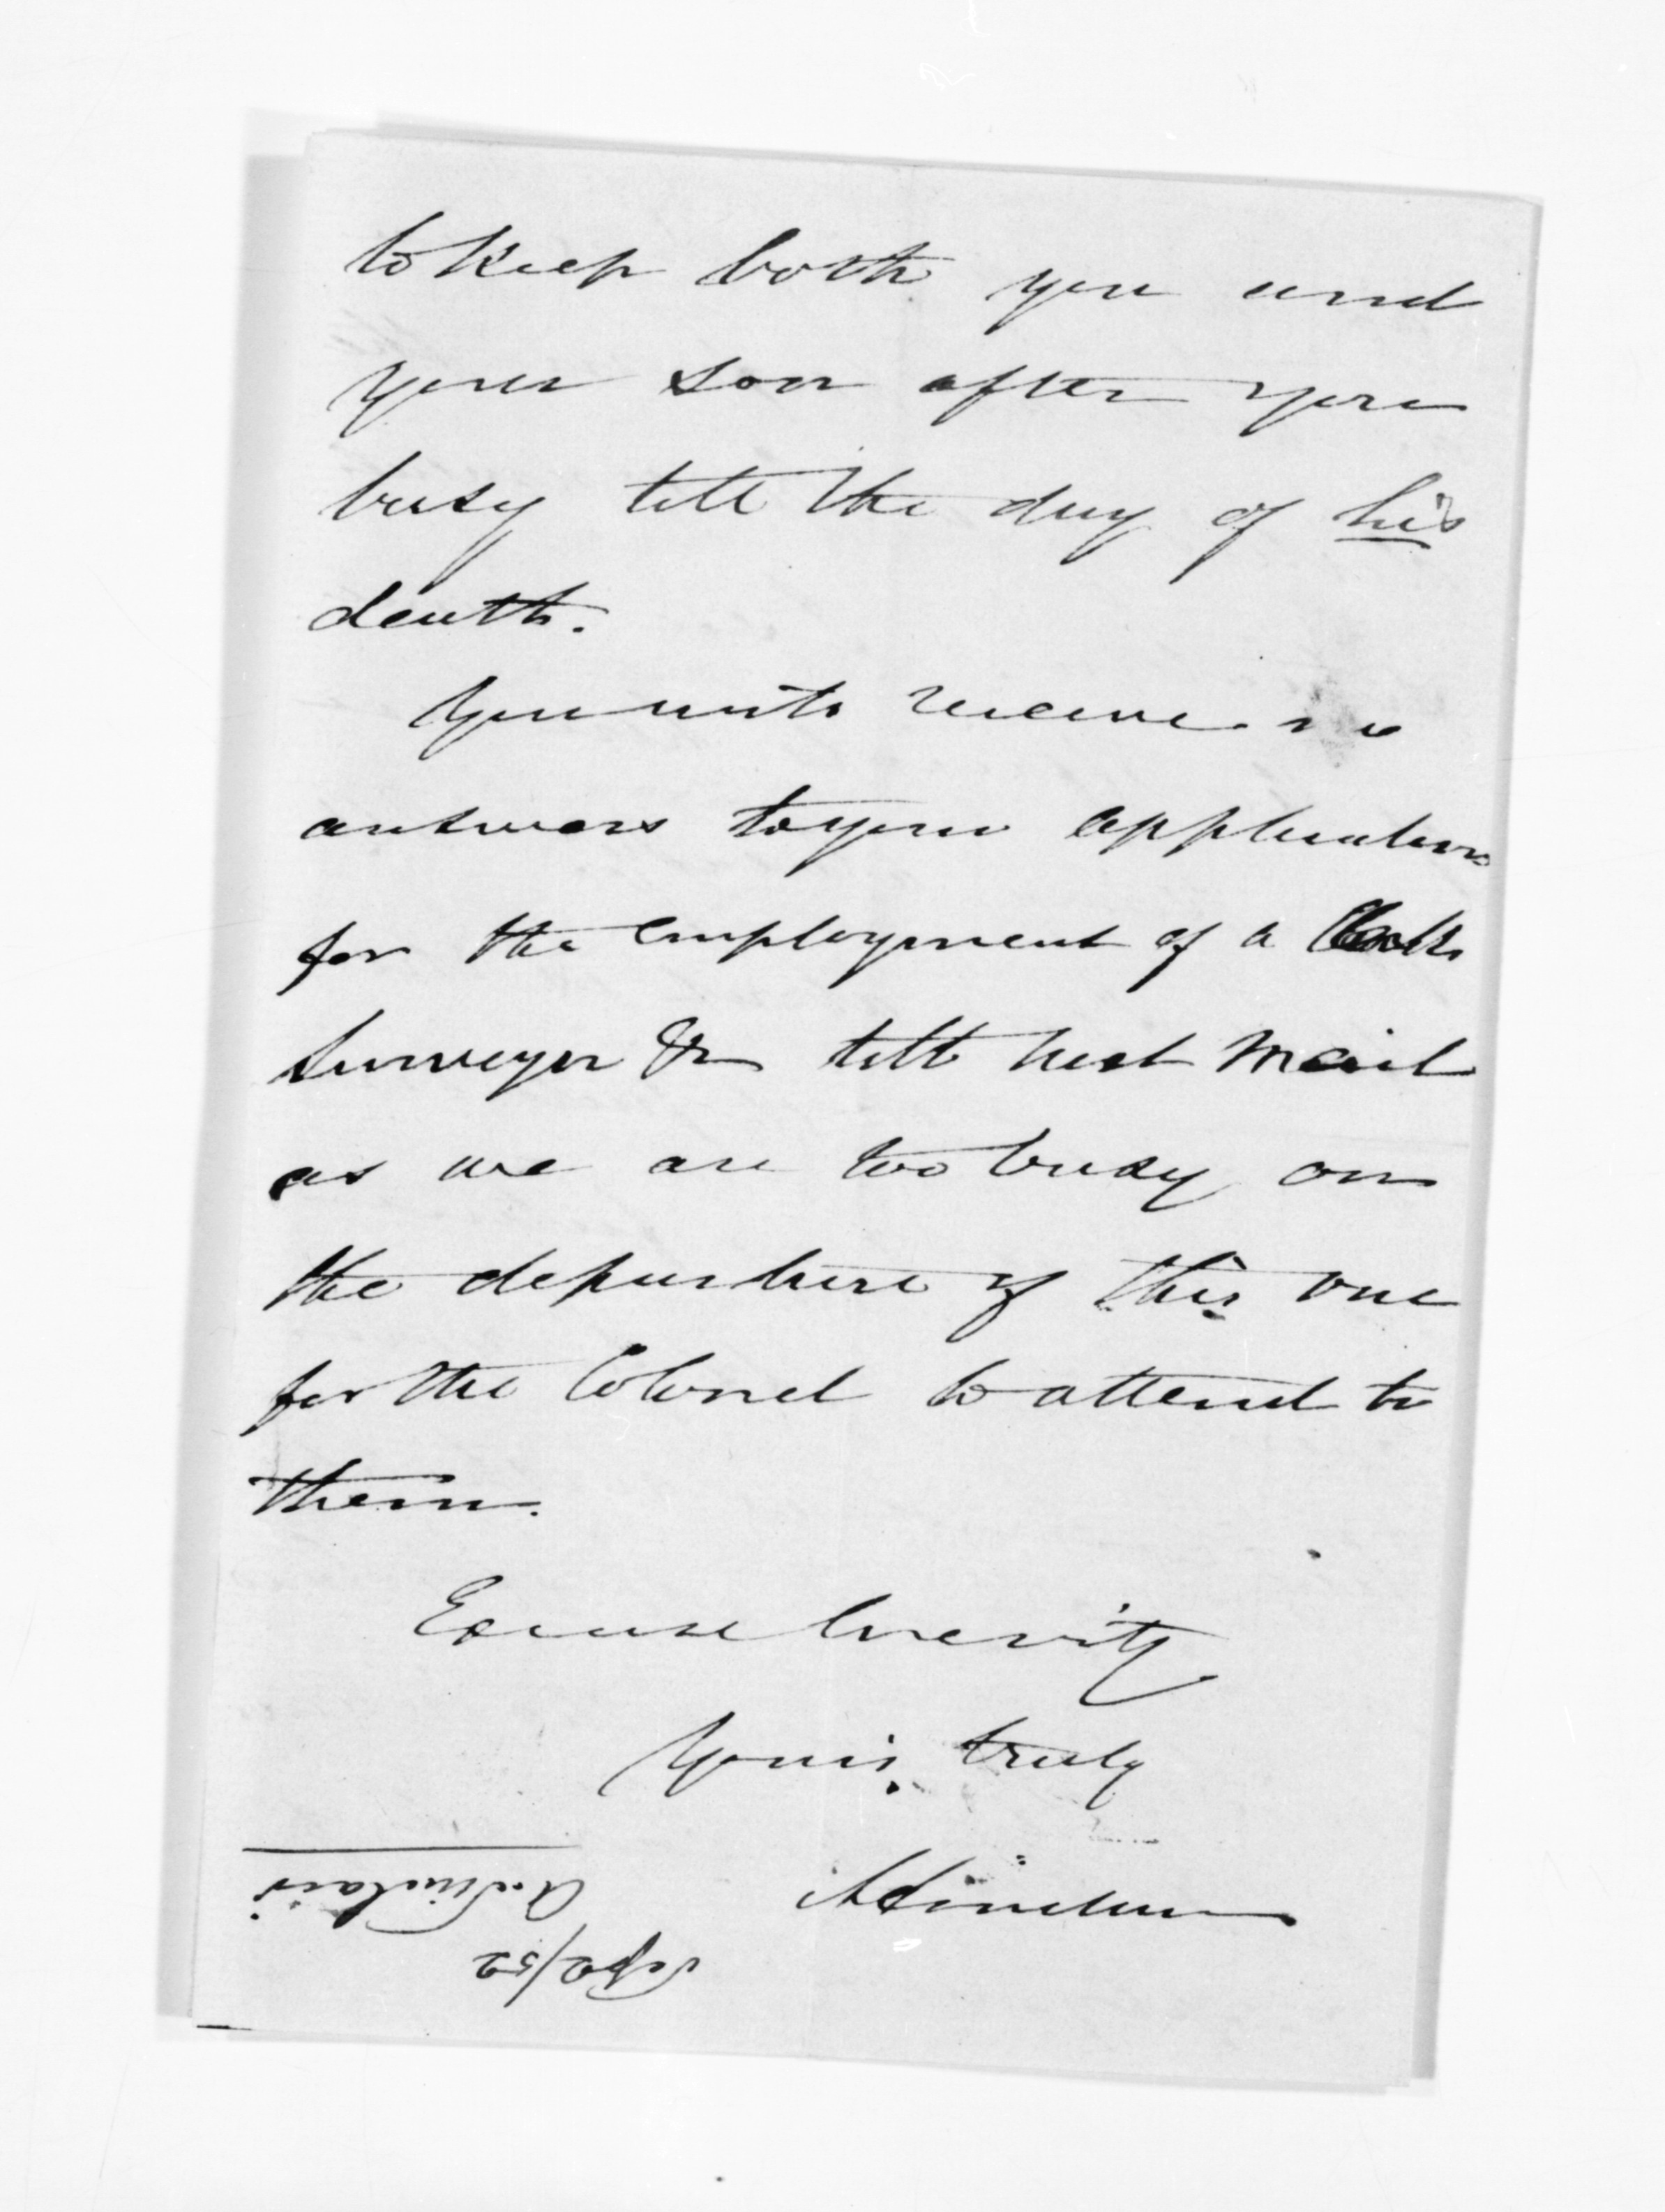 to keep both you and
your son after you
busy till the day of his
death.
You will receive no
answers to your applications
for the employment of a Clerk
Surveyor &c till next mail
as we are too busy on
the departure of this one
for the Colonel to attend to
them.
Excuse brevity
Yours truly
A Sinclair
Sep 2/52
A. Sinclair